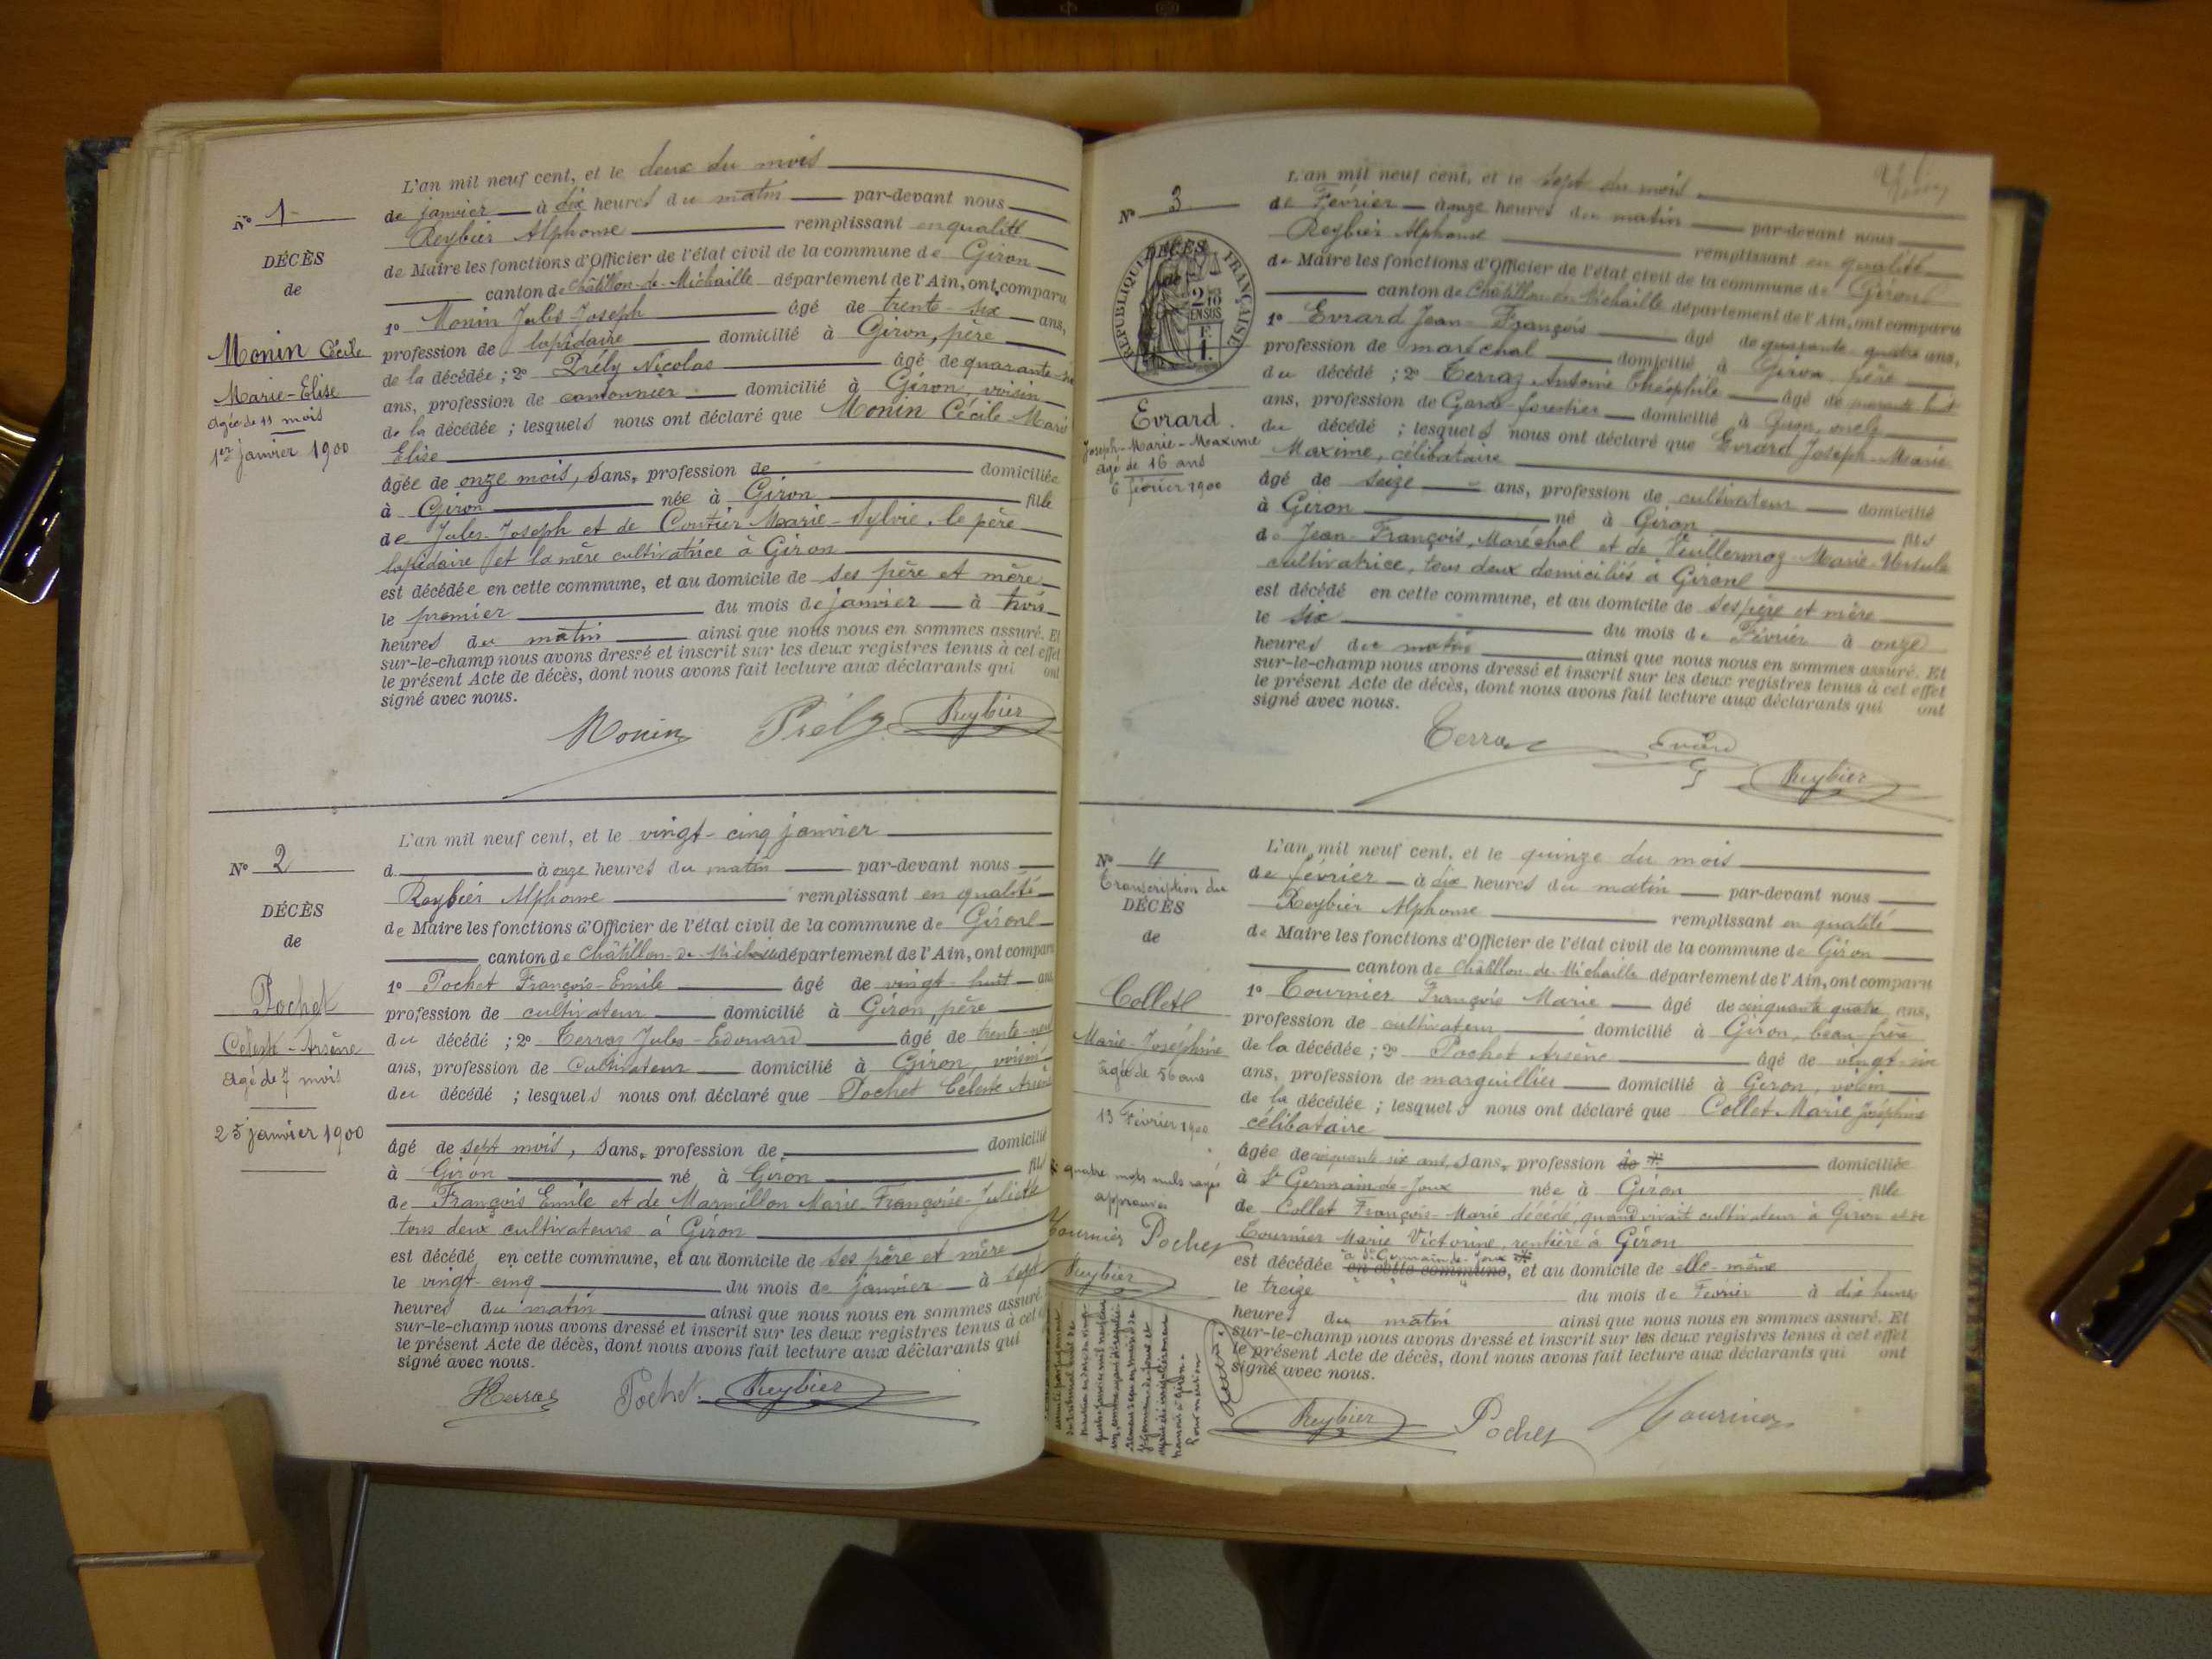 L'an mil neuf cent, et le deux du mois
de janvier à dix heures du matin par-devant nous
Reybier Alphonse remplissant en qualité
de Maire les fonctions d'Officier de l'état civil de la commune de Giron
canton de Châtillon-de-Michaille département de l'Ain, ont comparu
1º Monin Jules-Joseph âgé de trente-six ans,
profession de lapidaire domicilié à Giron, père
de la décédée ; 2º Prély Nicolas âgé de quarante-
ans, profession de cantonnier domicilié à Giron, voisin
de la décédée ; lesquels nous ont déclaré que Monin Cécile Marie
Elise
âgée de onze mois, sans profession de domiciliée
à Giron née à Giron fille
de Jules-Joseph et de Coutier Marie-Sylvie, le père
lapidaire et la mère cultivatrice à Giron
est décédée en cette commune, et au domicile de ses père et mère
le premier du mois de janvier à trois
heures du matin ainsi que nous nous en sommes assuré. Et
sur-le-champ nous avons dressé et inscrit sur les deux registres tenus à cet effet
le présent Acte de décès, dont nous avons fait lecture aux déclarants qui ont
signé avec nous.
Monin Prély Reybier
Nº 1
DÉCÈS
de
Monin Cécile
Marie-Elise
âgée de 11 mois
1er janvier 1900
L'an mil neuf cent, et le vingt-cinq janvier
d à onze heures du matin par-devant nous
Reybier Alphonse remplissant en qualité
de Maire les fonctions d'Officier de l'état civil de la commune de Giron
canton de Châtillon-de-Michaille département de l'Ain, ont comparu
1º Pochet François-Emile âgé de vingt-huit ans
profession de cultivateur domicilié à Giron, père
du décédé ; 2º Terraz Jules-Edouard âgé de trente-neuf
ans, profession de Cultivateur domicilié à Giron, voisin
du décédé ; lesquels nous ont déclaré que Pochet Céleste Arsène
âgé de sept mois, sans profession de domicilié
à Giron né à Giron fils
de François Emile et de Marmillon Marie-Françoise-Juliette
tous deux cultivateurs à Giron
est décédé en cette commune, et au domicile de ses père et mère
le vingt-cinq du mois de janvier à sept
heures du matin ainsi que nous nous en sommes assuré.
sur-le-champ nous avons dressé et inscrit sur les deux registres tenus à cet
le présent Acte de décès, dont nous avons fait lecture aux déclarants qui
signé avec nous.
Pochet Reybier
Nº 2
DÉCÈS
de
Pochet
Céleste-Arsène
âgé de 7 mois
25 janvier 1900
L'an mil neuf cent, et le sept du mois
de Février à onze heures du matin par-devant nous
Reybier Alphonse remplissant en qualité
de Maire les fonctions d'Officier de l'état civil de la commune de Giron
canton de Châtillon-de-Michaille département de l'Ain, ont comparu
1º Evrard Jean-François âgé de quarante-quatre ans,
profession de maréchal domicilié à Giron, père
du décédé ; 2º Terraz Antoine Théophile âgé de
ans, profession de Garde-forestier domicilié à Giron, oncle
du décédé ; lesquels nous ont déclaré que Evrard Joseph-Marie
Maxime, célibataire
âgé de seize ans, profession de cultivateur domicilié
à Giron né à Giron fils
de Jean-François, Maréchal et de Vuillermoz Marie-Ursule
cultivatrice, tous deux domiciliés à Giron
est décédé en cette commune, et au domicile de ses père et mère
le six du mois de Février à onze
heures du matin ainsi que nous nous en sommes assuré. Et
sur-le-champ nous avons dressé et inscrit sur les deux registres tenus à cet effet
le présent Acte de décès, dont nous avons fait lecture aux déclarants qui ont
signé avec nous.
Terraz Evrard
Reybier
Nº 3
DÉCÈS
de
RÉPUBLIQUE FRANÇAISE
Evrard
Joseph-Marie-Maxime
âgé de 16 ans
6 février 1900
L'an mil neuf cent, et le quinze du mois
de février à dix heures du matin par-devant nous
Reybier Alphonse remplissant en qualité
de Maire les fonctions d'Officier de l'état civil de la commune de Giron
canton de Châtillon-de-Michaille département de l'Ain, ont comparu
1º Tournier François Marie âgé de cinquante quatre ans,
profession de cultivateur domicilié à Giron, beau frère
de la décédée ; 2º Pochet Arsène âgé de vingt-six
ans, profession de marguillier domicilié à Giron, voisin
de la décédée ; lesquels nous ont déclaré que Collet Marie Joséphine
célibataire
âgée de cinquante six ans, sans profession de domiciliée
à St Germain-de-Joux née à Giron fille
de Collet François-Marie décédé, quand vivait cultivateur à Giron et de
Tournier Marie Victorine, rentière à Giron
à St Germain-de-Joux
est décédée en cette commune, et au domicile de elle-même
le treize du mois de Février à dix heures
heures du matin ainsi que nous nous en sommes assuré. Et
sur-le-champ nous avons dressé et inscrit sur les deux registres tenus à cet effet
le présent Acte de décès, dont nous avons fait lecture aux déclarants qui ont
signé avec nous.
Reybier Pochet
Nº 4
Transcription du
DÉCÈS
de
Collet
Marie-Joséphine
âgée de 56 ans
13 Février 1900
quatre mots nuls rayés
approuvés
Tournier Pochet
Reybier